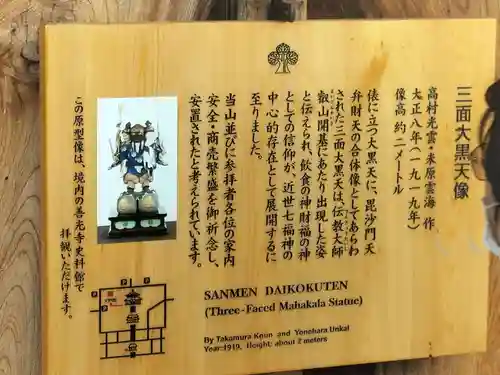 三面大黒天像
高村光雲・米原雲海 作
大正八年(一九一九年)
像高 約 二メートル
俵に立つ大黒天に、毘沙門天
弁財天の合体像としてあらわ
された三面大黒天は、伝教大師
叡山開基にあたり出現した姿
と伝えられ、飲食の神財福の神
としての信仰が、近世七福神の
中心的存在として展開するに
至りました。
当山並びに参拝者各位の家内
安全・商売繁盛を御祈念し、
安置されたと考えられています。
この原型像は、境内の善光寺史料館で
拝観いただけます。
SANMEN DAIKOKUTEN
(Three-Faced Mahakala Statue)
By Takamura Koun and Yonehara Unkai
Year:1919, Height: about 2 meters